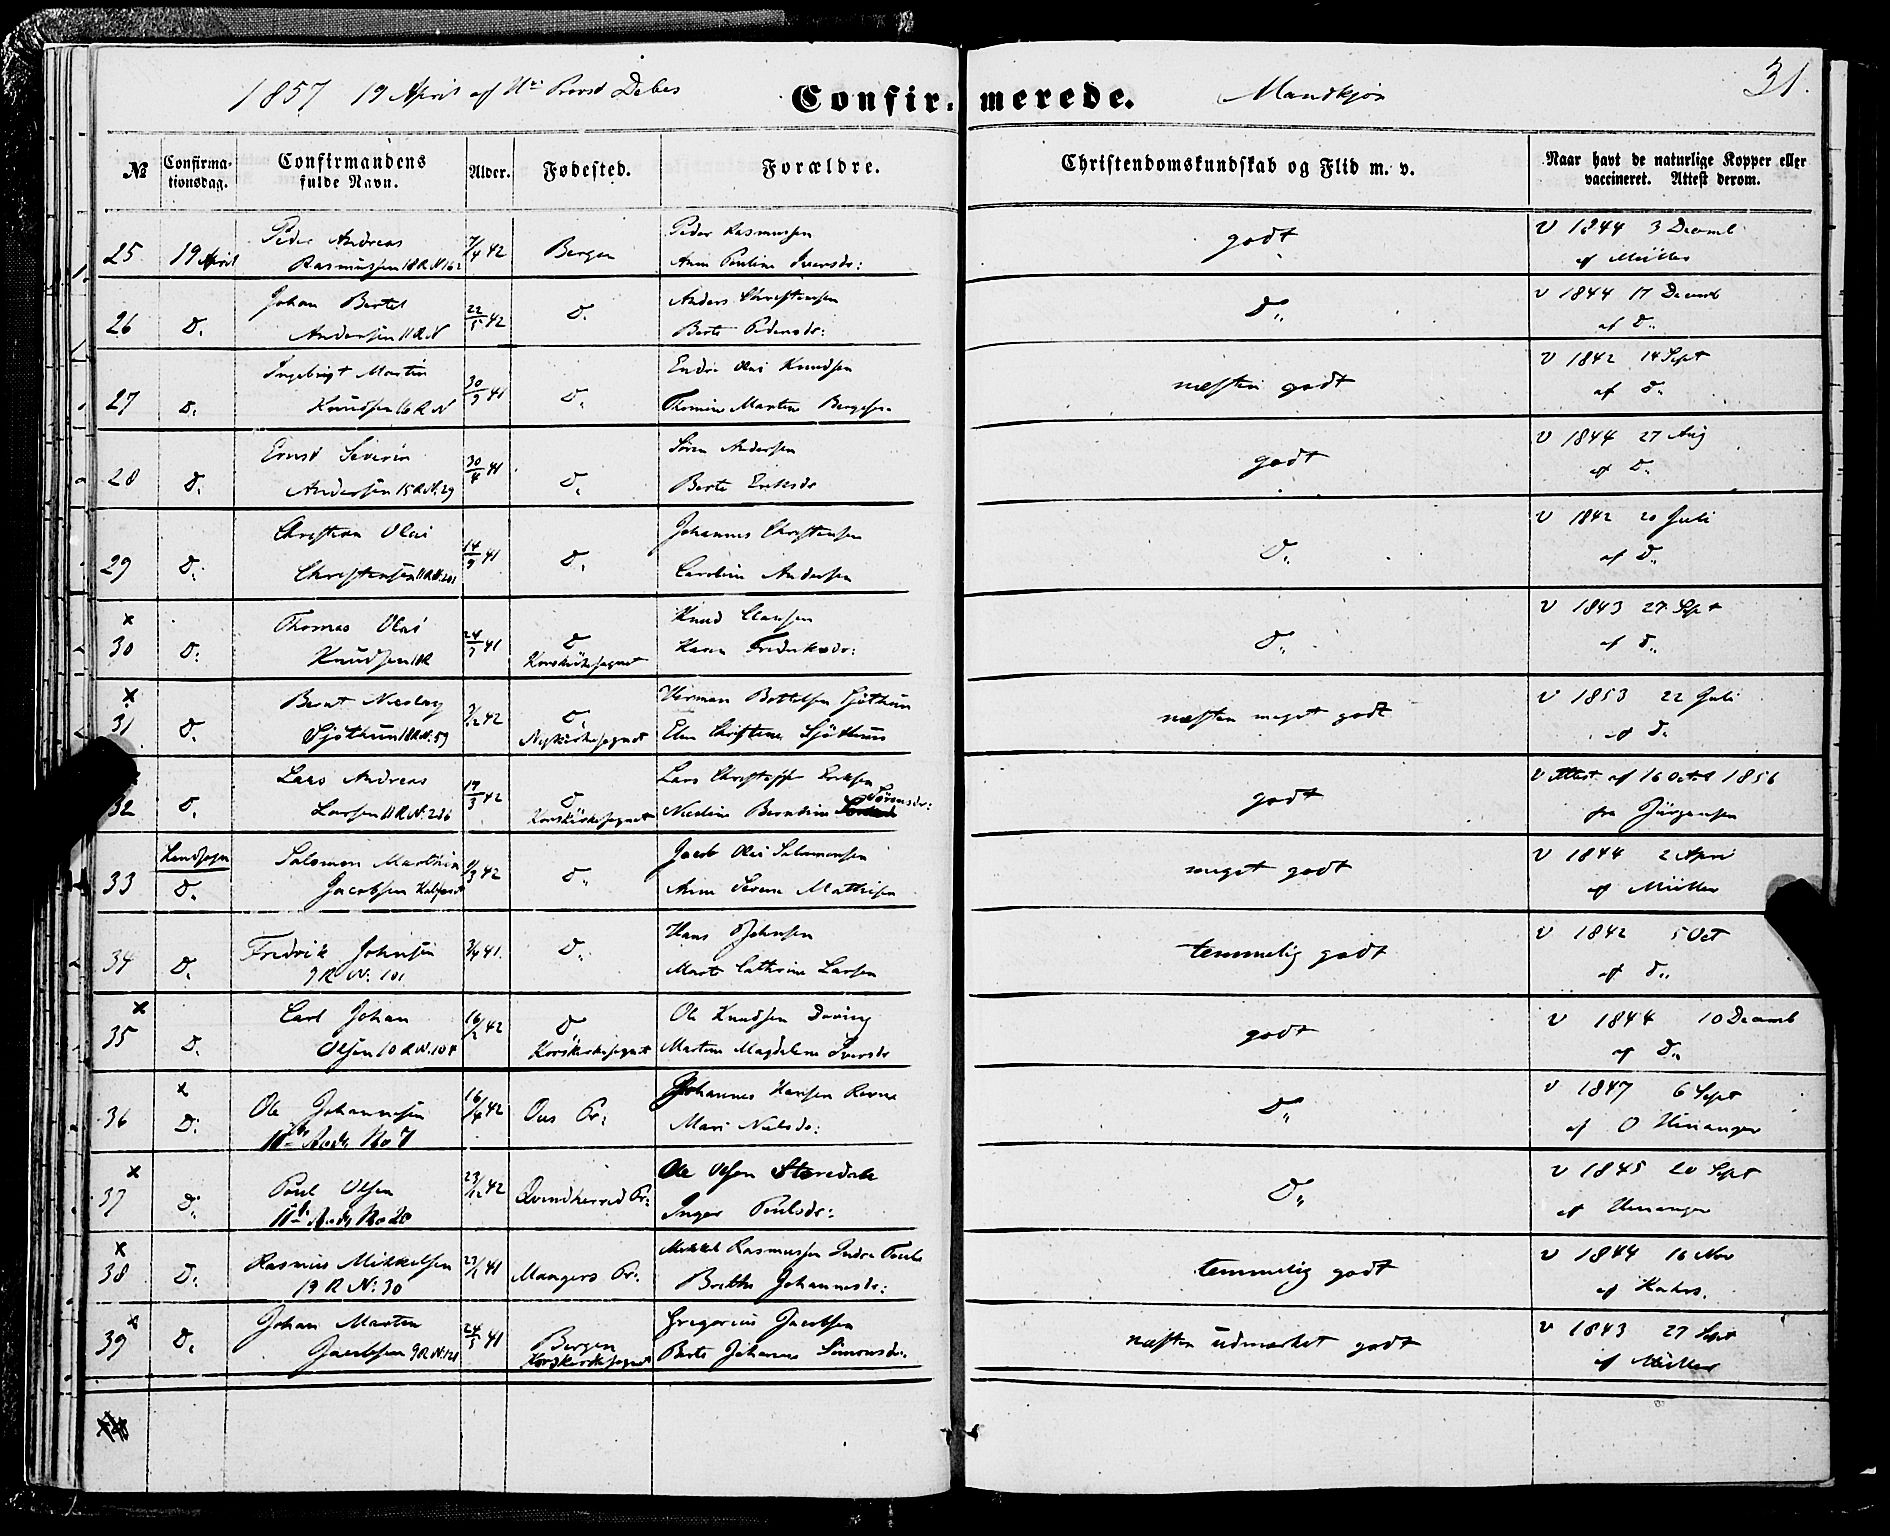 1857 19 April af Hr Provst Debes Confirmerede. Mandkjøn 31.
№ Confirmationsdag. Confirmandens fulde Navn. Alder. Fødested. Forældre. Christendomskundskab og Flid m. v. Naar havt de naturlige Kopper eller vaccineret. Attest derom.
25 19 April Peder Andreas 7/4 42 Bergen Peder Rasmussen godt V 1844 3 Decemb
Rasmussen 18 R N 162 Anne Pauline Iversdr: af Müller
26 D: Johan Bertel 22/5 42 D: Anders Christensen D: V 1844 17 Decemb
Andersen 11 R N Berte Pedersdr: af D:
27 D: Ingebrigt Martin 30/9 41 D: Endre Olai Knudsen næsten godt V 1842 14 Sept
Knudsen 16 R N Thomine Martine af D:
28 D: Ernst Severin 30/4 41 D: Søren Andersen godt V 1844 27 Aug
Andersen 15 R N: 29 Berte Eriksdr af D:
29 D: Christian Olai 14/9 41 D: Johannes Christensen D: V 1842 20 Juli
Christensen 11 R N: 201 Caroline Andersen af D:
x
30 D: Thomas Olai 24/7 41 D Knud Clausen D: V 1843 27 Sept
Knudsen 11 R Korskirkesognet Karen Frederiksdr: af D:
x
31 D: Bernt Nicolay 42 D Herman Bottelsen Sjöthun næsten meget godt V 1853 22 Juli
Sjöthun 18 R N: 59 Nykirkesognet Elen Christine Sjöthun af D:
32 D: Lars Andreas 19/3 42 D Lars Christoffer Eriksen godt V Attest af 16 Octr 1856
Larsen 11 R N: 226 Korskirkesognet Nicoline Berntine Sörensdr: fra Jürgensen
Landsogn
33 D: Salomon Marthin 42 D: Jacob Olai Salomonsen meget godt V 1844 2 April
Jacobsen Kalfaret Anne Severine Mathisen af Müller
34 D: Fredrik Johnsen 3/9 41 D: Hans Johnsen temmelig godt V 1842 5 Oct
9 R N: 101 Marte Cathrine Larsen af D:
x
35 D: Carl Johan 16/2 42 D Ole Knudsen Döving godt V 1844 10 Decemb
Olsen 10 R N: 108 Korskirkesognet Martine Magdalene Iversdr af D:
x
36 D: Ole Johannesen 16/4 42 Ous Pr: Johannes Hansen Revne D: V 1847 6 Sept
11te Rode No 7 Mari Nielsdr: af O
x
37 D: Poul Olsen 23/12 42 Qvindherred Pr: Ole Olsen D: V 1845 20 Sept
11te Rode No 20 Inger Poulsdr: af
x
38 D: Rasmus Mikkelsen 23/1 41 Mangers Pr: Mikkel Rasmussen temmelig godt V 1844 16 Nov
19 R N: 30 Brithe Johannesdr: af Kahrs.
x
39 D: Johan Martin 24/5 41 Bergen Gregorius Jacobsen næsten udmærket godt V 1843 27 Sept
Jacobsen 9 R N: 121 Korskirkesognet Berte Johanne Simonsdr. af Müller